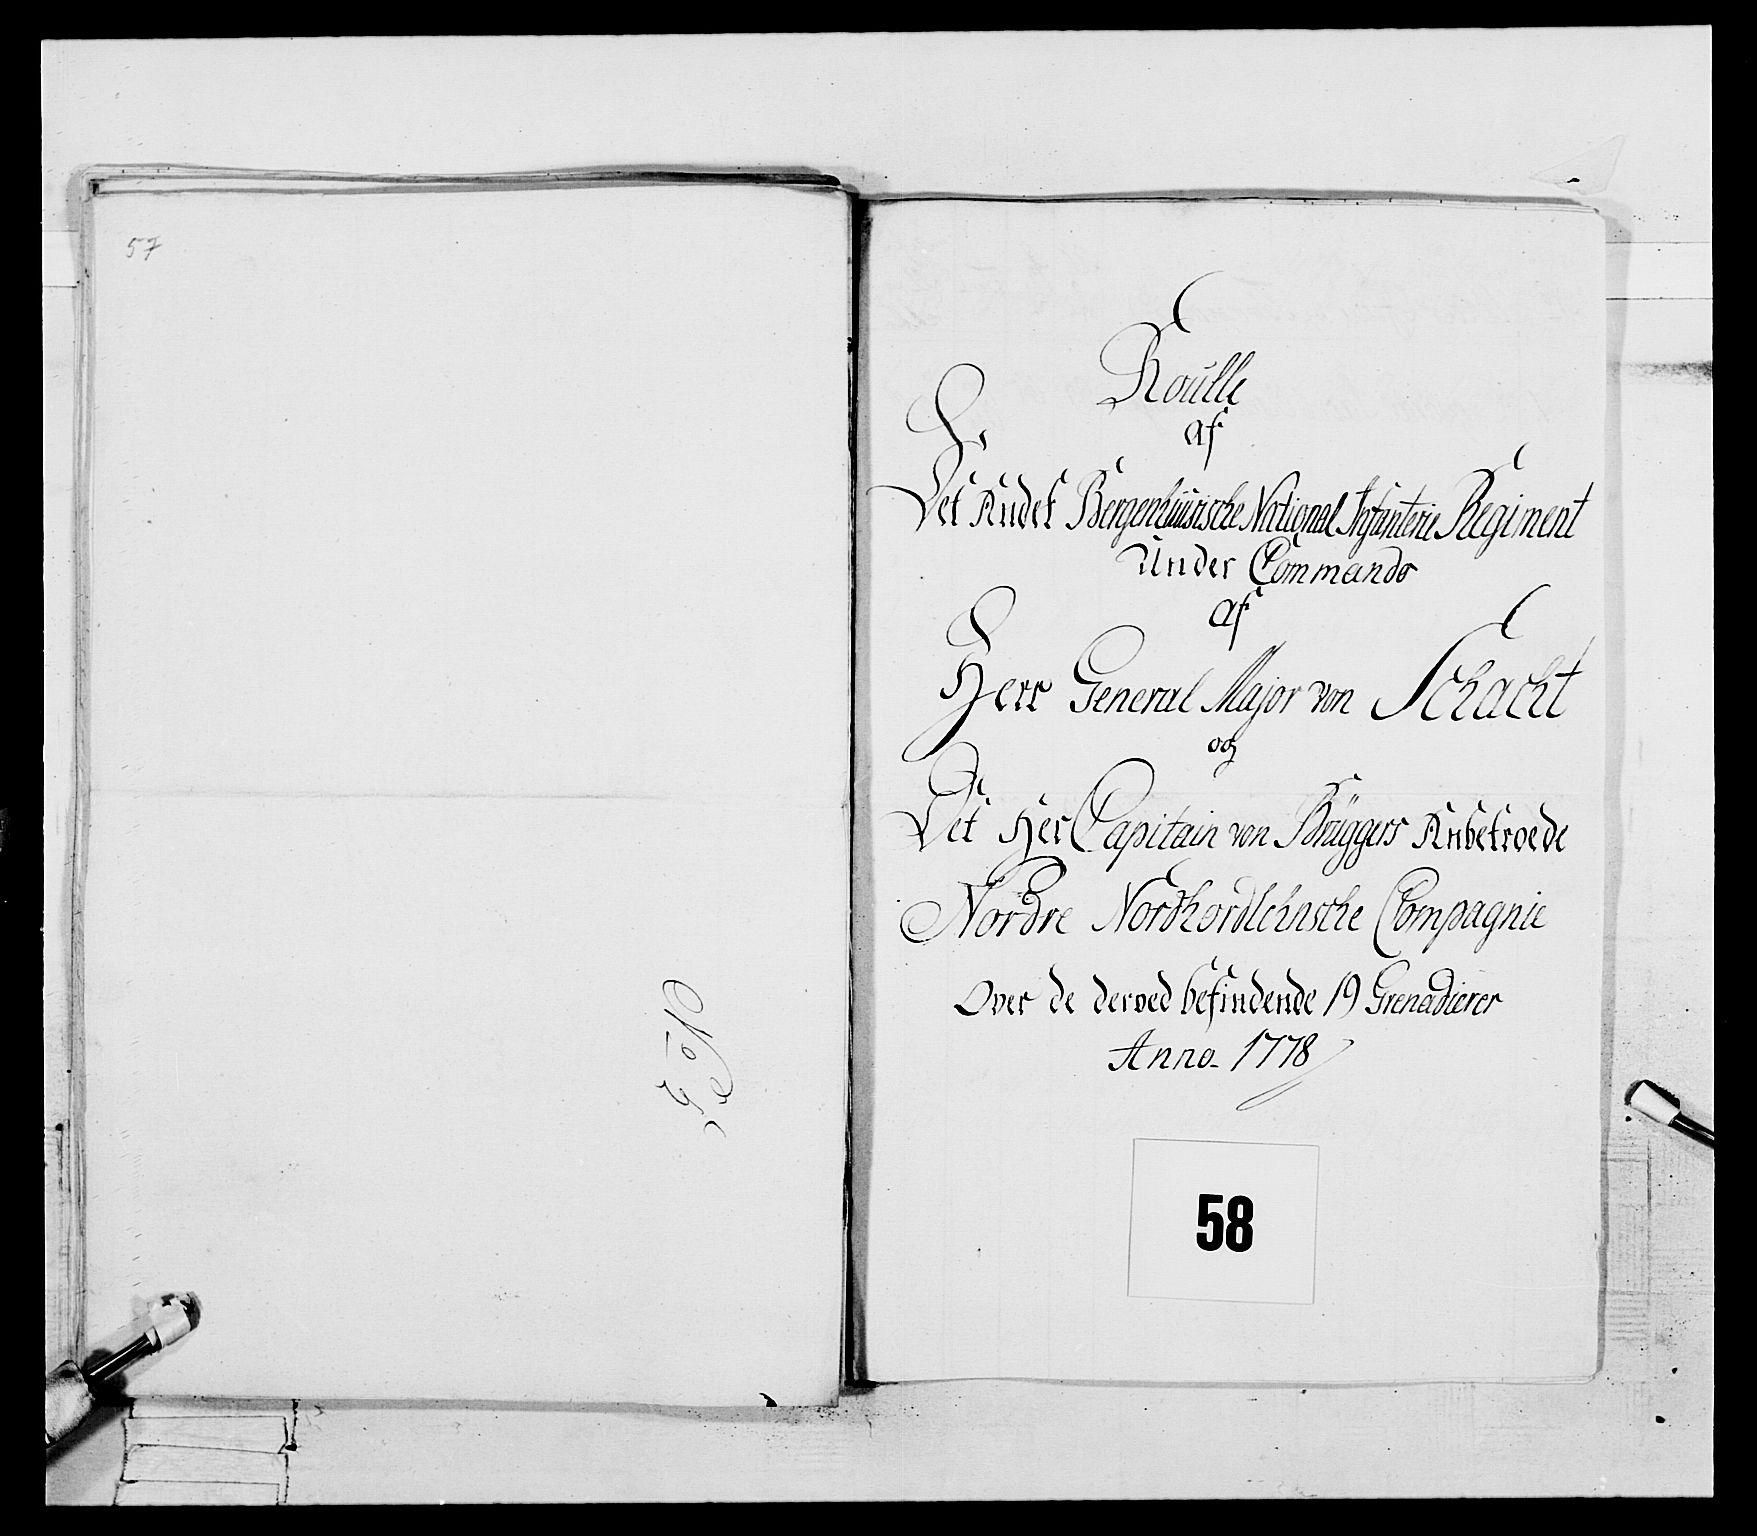 57
No 5
Roulle
af
Det Andet Bergenhuusische National Infanterie Regiment
Under Commando
af
Herr General Major von Schacht
og
Det Her Capitain von Brüggers Anbetroede
Nordre Nordhordlehnsche Compagnie
Over de derved befindende 19 Grenadierer
Anno 1778
58